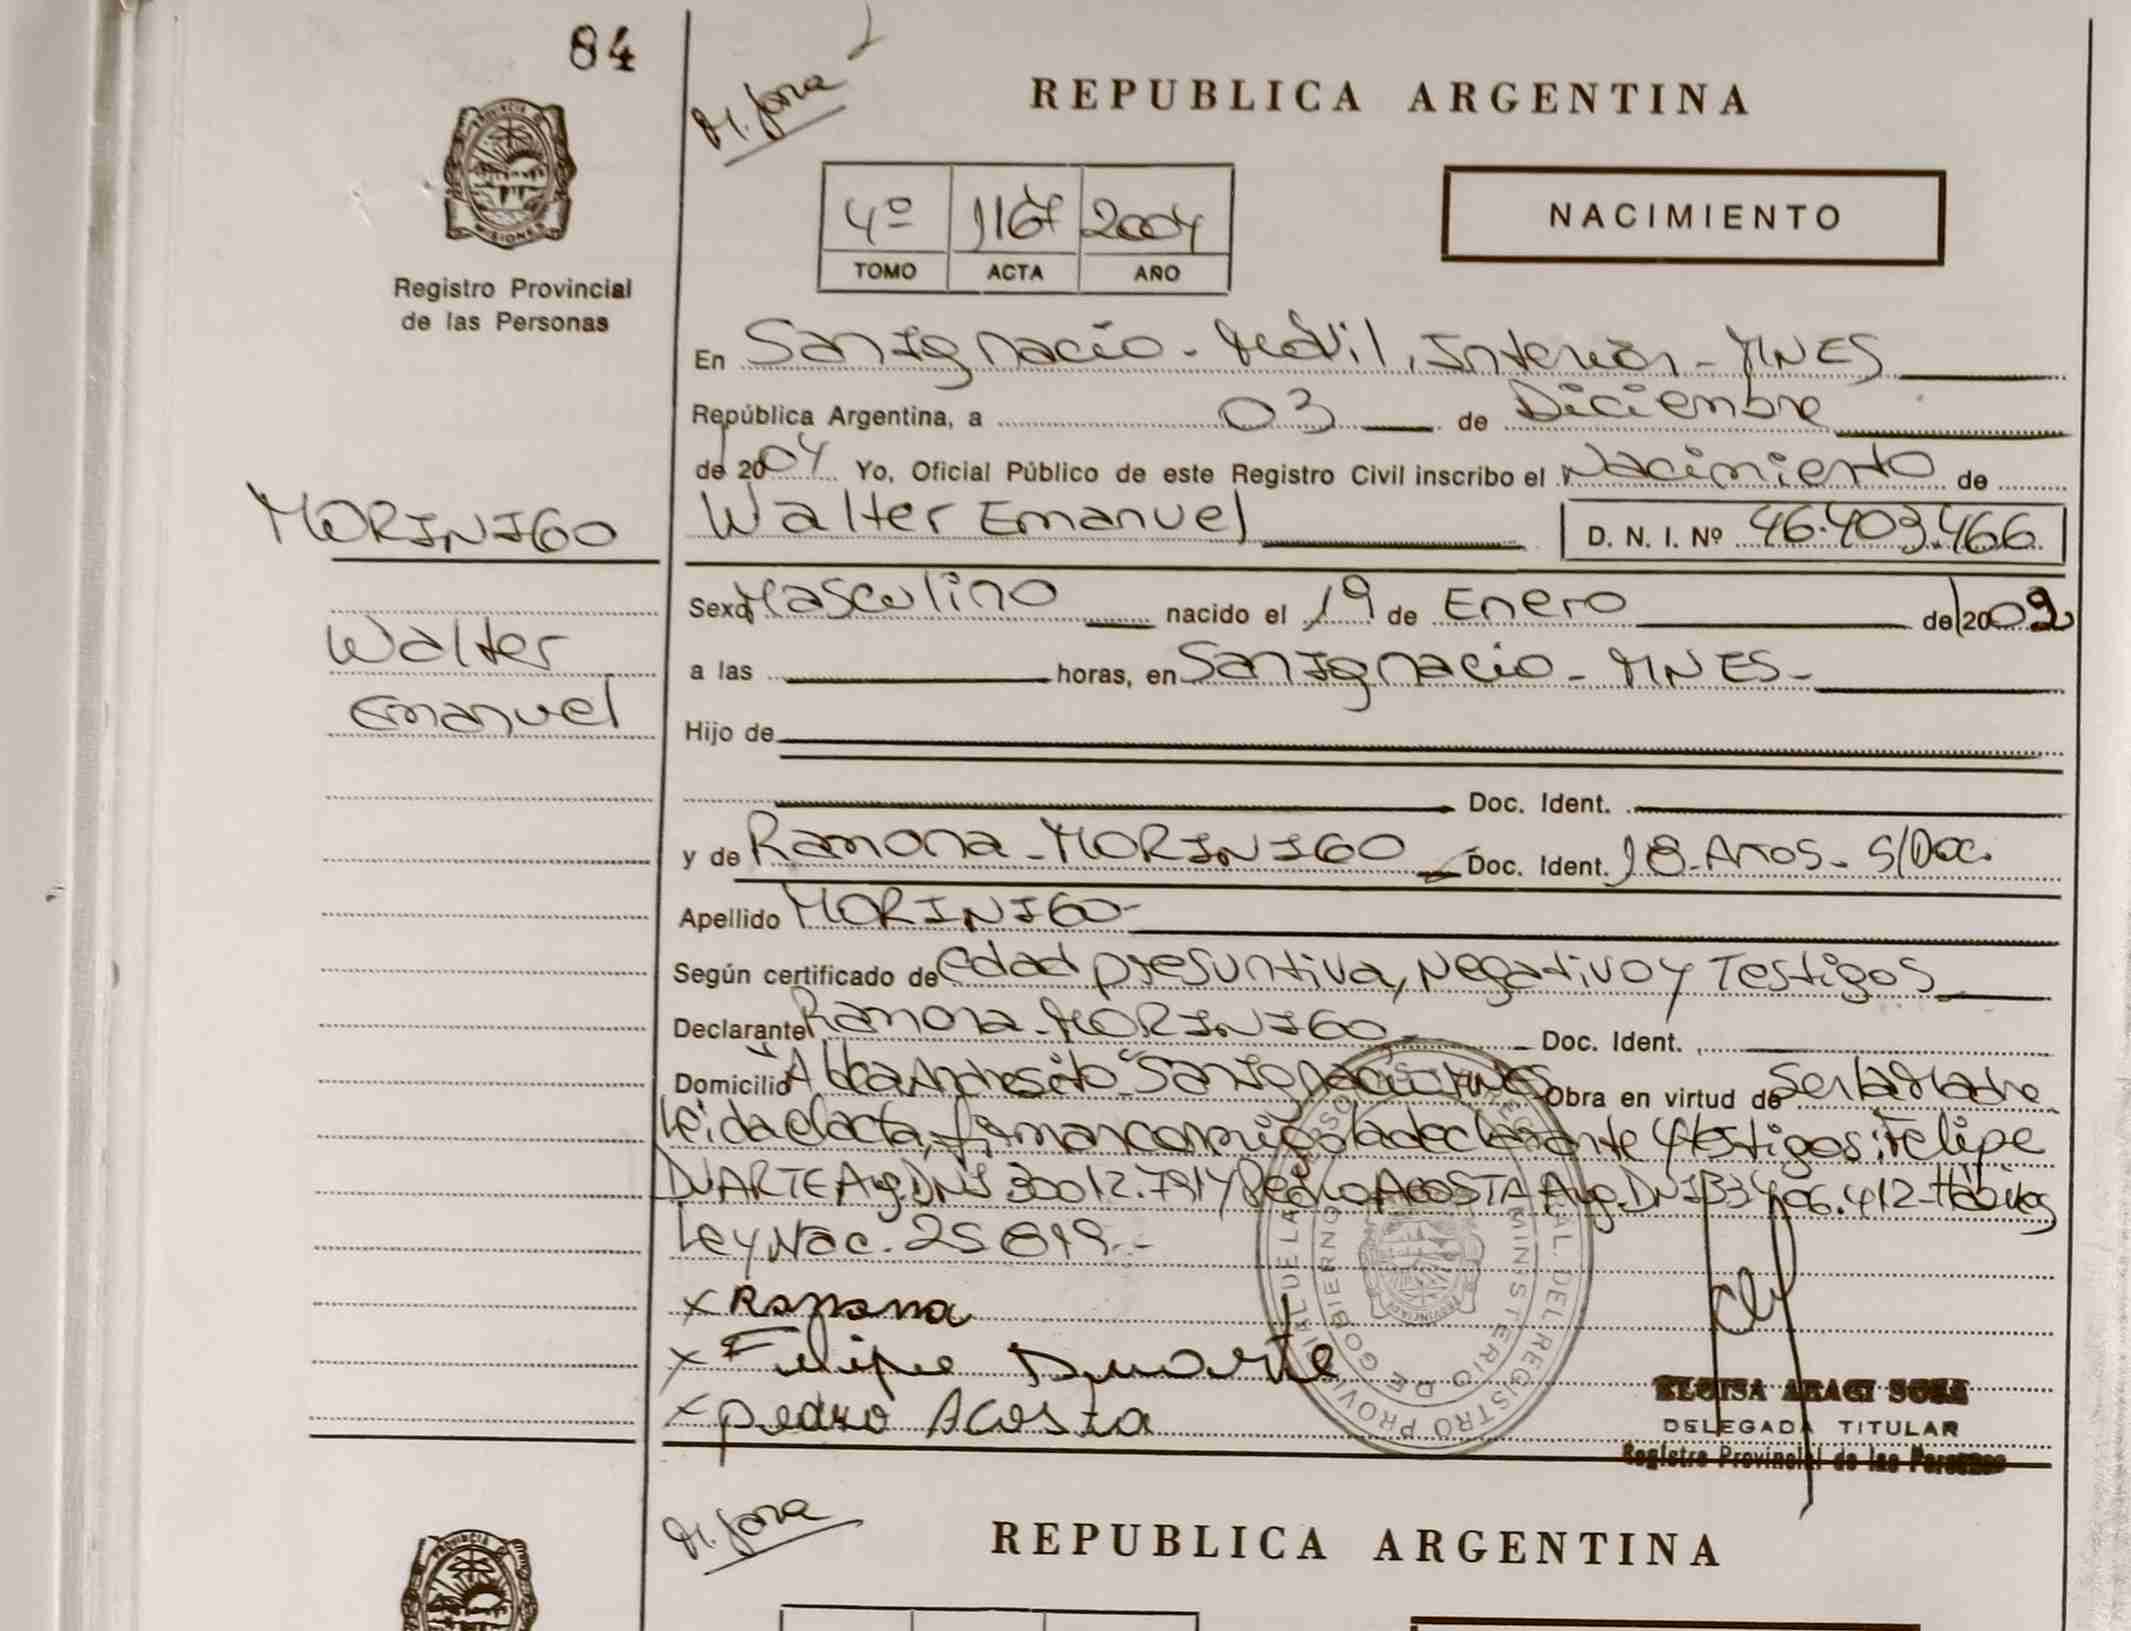 84
M. Jona
REPUBLICA ARGENTINA
PROVINCIA DE MISIONES
Registro Provincial
de las Personas
4º 1167 2004
TOMO ACTA AÑO
NACIMIENTO
En San Ignacio - Móvil, Interior - MNES
República Argentina, a 03 de Diciembre
de 2004 Yo, Oficial Público de este Registro Civil inscribo el Nacimiento de
MORINIGO
Walter Emanuel D. N. I. Nº 46.403.466
Sexo Masculino nacido el 19 de Enero de 2002
Walter
Emanuel
a las horas, en San Ignacio - MNES -
Hijo de
Doc. Ident.
y de Ramona - MORINIGO Doc. Ident. 18 Años - S/Doc.
Apellido MORINIGO -
Según certificado de edad presuntiva, Negativo y Testigos
Declarante Ramona - MORINIGO - Doc. Ident.
Domicilio Aldea Andresito "San Ignacio MNES Obra en virtud de Ser la Madre
Leida el acta, firman conmigo la declarante y testigos: Felipe
DUARTE Arg. DNI 30012.791 y Pedro ACOSTA Arg. DNI 33406.412 - Hábiles
Ley Nac. 25819.-
x Ramona
x Felipe Duarte
x pedro Acosta
ELOISA ARAGI SOSA
DELEGADA TITULAR
Registro Provincial de las Personas
MINISTERIO DE GOBIERNO
M. Jona
REPUBLICA ARGENTINA
PROVINCIA